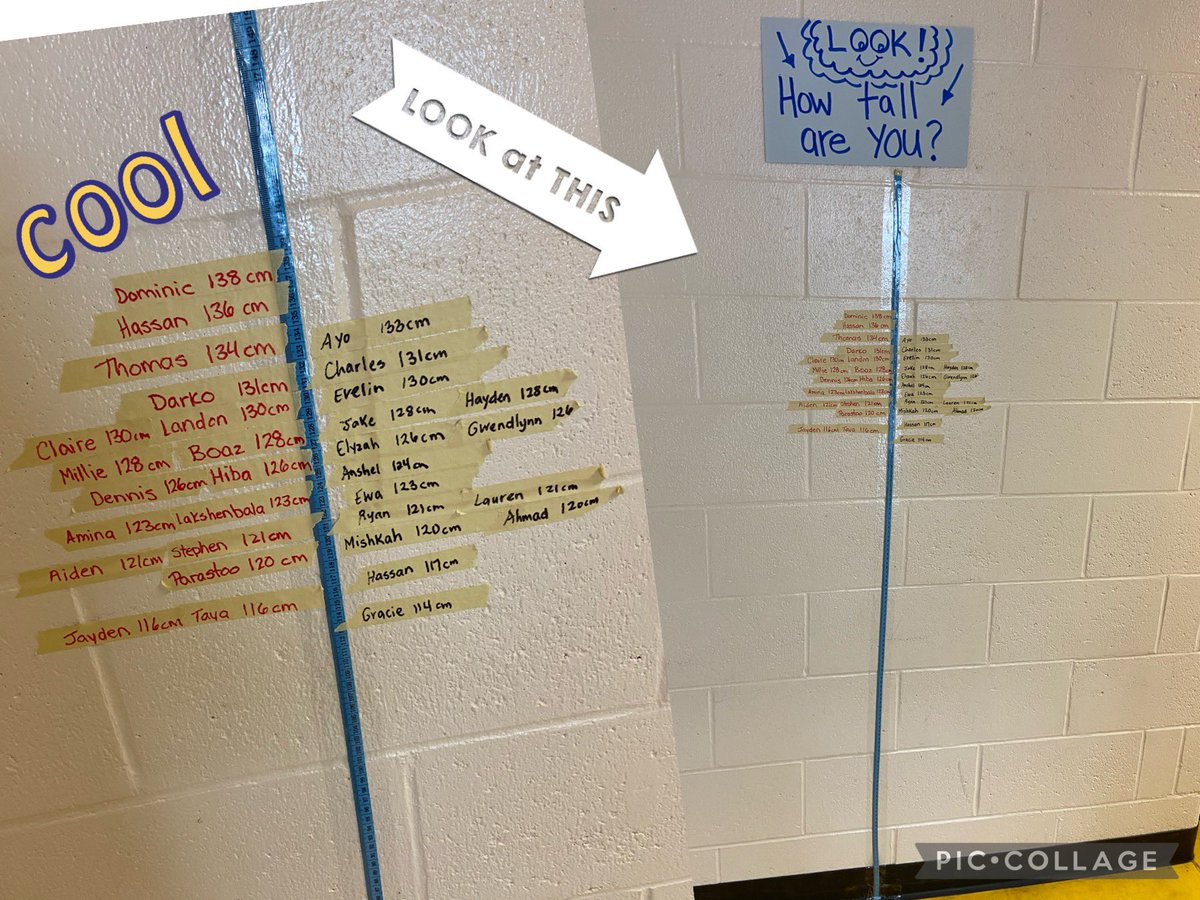 COOL
LOOK at THIS
LOOK!
How tall
are you?
Dominic 138 cm
Hassan 136 cm
Thomas 134 cm
Darko 131cm
Claire 130cm Landon 130cm
Millie 128 cm Boaz 128cm
Dennis 126cm Hiba 126cm
Amina 123cm Lakshenbala 123cm
Aiden 121cm Stephen 121cm
Parastoo 120 cm
Jayden 116cm Taya 116cm
Ayo 133cm
Charles 131cm
Evelin 130cm
Jake 128cm Hayden 128cm
Elyzah 126cm Gwendlynn 126
Anshel 124cm
Ewa 123cm
Ryan 121cm Lauren 121cm
Mishkah 120cm Ahmad 120cm
Hassan 117cm
Gracie 114cm
PIC•COLLAGE